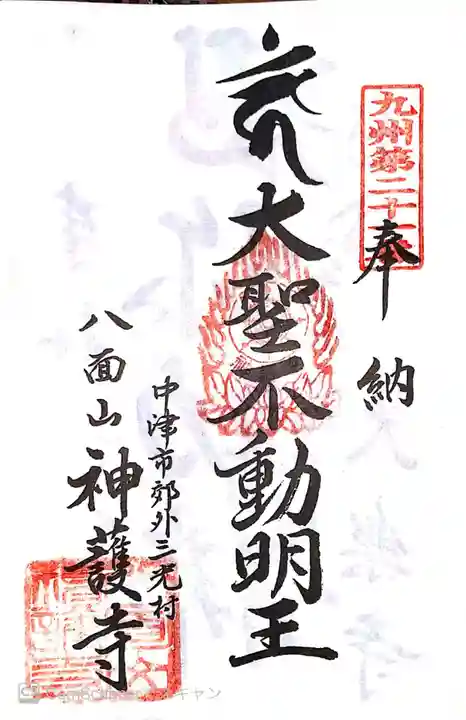 九州第二十一
奉納
大聖不動明王
中津市郊外三光村
八面山神護寺